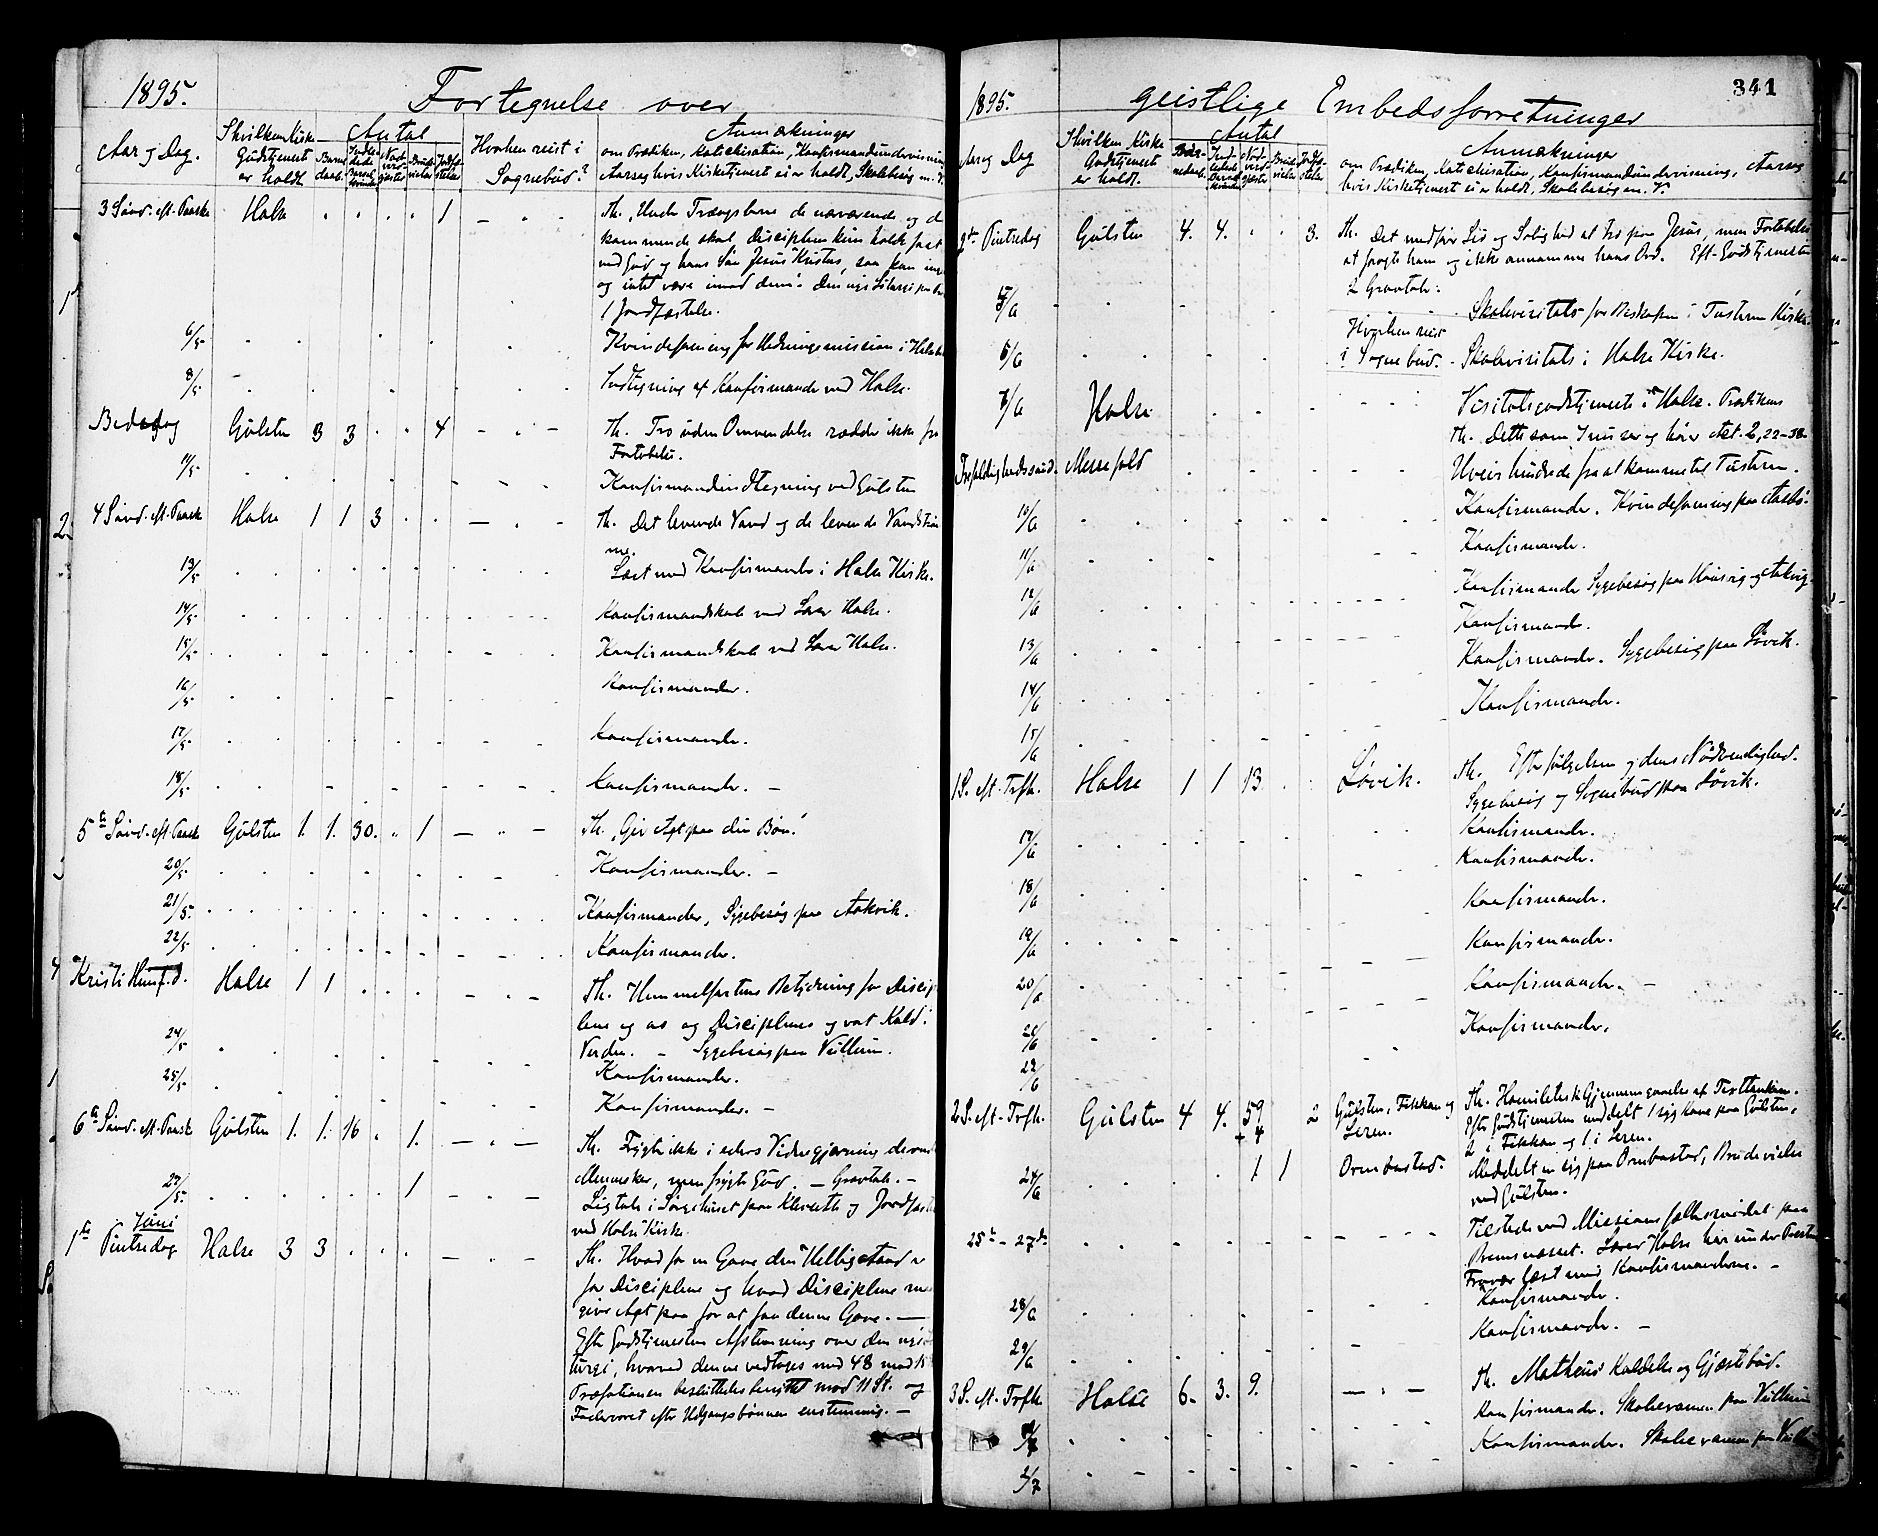 1895.
Fortegnelse over
Aar og Dag.
I hvilken Kirke
Gudstjenest
er holdt.
Antal
Barne
daab.
Jordfæ-
stelser
Hvorhen reist i
Sognebud?
Anmærkninger
om Prædiken, Katechisation, Konfirmandundervisning
Aarsag hvis Kirketjenest ei er holdt, Skolebesøg m. V.
3 Sönd. eft. Paaske Halse 1
Th. Under Trængslerne de nærværende og de
kommende skal Disciplene kun holde fast
ved Gud og hans Søn Jesus Kristus, saa kan ingen
og intet være imod dem.
1 Jordfæstelse.
6/5 Kvindeforening for Hedningemission i Halse
8/5 Indtegning af Konfirmander ved Halse.
Bededag Gulsten 3 3 4
Th. Tro uden Omvendelse redder ikke fra
Fortabelse.
11/5 Konfirmandindtegning ved Gulsten
4 Sönd. eft. Paaske Halse 1 1 3
Th. Det levende Vand og de levende Vandström
me.
13/5 Læst med Konfirmander i Halse Kirke.
14/5 Konfirmandskole ved Lærer Halse.
15/5 Konfirmandskole ved Lærer Halse.
16/5 Konfirmander.
17/5 Konfirmander.
18/5 Konfirmander. –
5te Sönd. eft. Paaske Gulsten 1. 1. 30. 1
Th. "Giv Agt paa din Bøn."
20/5 Konfirmander. –
21/5 Konfirmander, Sygebesøg paa Aakvik.
22/5 Konfirmander.
Kristi Himf. D. Halse 1 1
Th. Himmelfartens Betydning for Discip
lene og os og Disciplenes og vort Kald i
Verden. – Sygebesøg paa Vullum.
24/5 Konfirmander.
25/5 Konfirmander. –
6te Sönd. eft. Paaske Gulsten 1. 1. 16 1.
Th. Frygt ikke i eders Vidnegjerning
Mennesker, men frygt Gud. – Gravtale. –
27/5 1
Ligtale i Sørgehuset paa og Jordfæst
ved Halse Kirke.
Juni
1ste Pintsedag Halse 3 3
Th. Hvad for en Gave den Helligaand er
for Disciplene og hvad Disciplene maa
give Agt paa for at faa denne Gave. –
Efter Gudstjenesten Afstemning over den nye Li
turgi, hvorved denne vedtoges med 48 mod
Præfationen besluttedes benyttet mod 11 St. og
Fadervoret efter Udgangsbønnen enstemmig. –
341
1895.
geistlige Embedsforretninger
Aar og Dag
I hvilken Kirke
Gudstjenest
er holdt.
Antal
Bar-
nedaab.
Anmærkninger
om Prædiken, Katechisation, Konfirmandundervisning, Aarsag
hvis Kirketjenest ei er holdt, Skolebesøg m. V.
2den Pintsedag Gulsten 4. 4. 3.
Th. Det medfører Liv og Salighed at tro paa Jesus, men Fortabelse
at foragte ham og ikke annamme hans Ord. Eft. Gudstjenesten
2 Gravtaler.
Skolevisitats for Biskopen i Tustern Kirke.
Hvorhen reist
i Sognebud.
5/6 Skolevisitats i Halse Kirke.
6/6 Halse
Visitatsgudstjeneste i Halse. Prædikens
Th. Dette som I nu ser og hører Akt. 2, 22–38
Trefoldighedssönd. Messefald
Uveir hindrede fra at komme til Tustern.
10/6 Konfirmander. Kvindeforening paa Aasbø.
11/6 Konfirmander.
12/6 Konfirmander Sygebesøg paa og Aakvig.
Konfirmander.
13/6 Konfirmander. Sygebesøg paa Løvik.
14/6 Konfirmander.
15/6
1 S. eft. Trfh. Halse 1 1 13 Løvik.
Th. Efterfølgelsen og dens Nødvendighed.
Sygebesøg og Sognebud paa Løvik.
17/6 Konfirmander.
Konfirmander.
18/6 Konfirmander.
19/6 Konfirmander.
20/6 Konfirmander. –
21/6 Konfirmander.
22/6
2 S. eft. Trfh. Gulsten 4 4. 59 + 4 2 Gulsten, Fikkan og
Leren.
Th. Homiletisk Gjennemgaaelse af Textten.
Efter Gudstjenesten meddelt 1 syg Kone paa Gulsten,
2 i Fikkan og 1 i Leren.
24/6 1 1 Ormbostad.
Meddelt en syg paa Ormbostad, Brudevielse
ved Gulsten.
25de – 27de
Tilstede ved Missionsfællesmødet paa
Bremsnæsset. Lærer Halse har under Prestens
Fravær læst med Konfirmanderne. –
28/6 Konfirmander.
29/6 Konfirmander. –
3 S. eft. Trfh. Halse 6. 3. 9.
Th. Mathæus' Kaldelse og Gjæstebud.
1/7 Konfirmander. Skoleexamen paa Vullum
2/7 Konfirmander. Skoleexamen paa